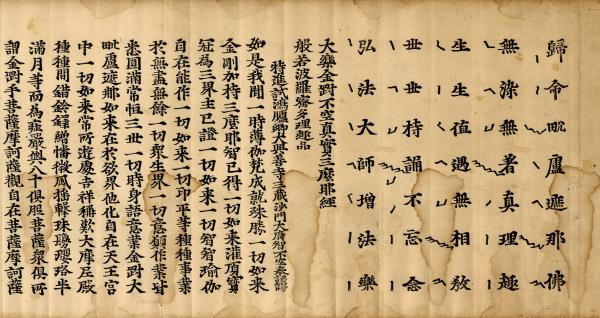 歸命毗盧遮那佛
無染無著真理趣
生生值遇無相教
世世持誦不忘念
弘法大師增法樂
大樂金剛不空真實三麼耶經
般若波羅蜜多理趣品
特進試鴻臚卿大興善寺三藏沙門大廣智不空奉詔譯
如是我聞一時薄伽梵成就殊勝一切如來
金剛加持三麼耶智已得一切如來灌頂寶
冠為三界主已證一切如來一切智智瑜伽
自在能作一切如來一切印平等種種事業
於無盡無餘一切眾生界一切意願作業皆
悉圓滿常恒三世一切時身語意業金剛大
毗盧遮那如來在於欲界他化自在天王宮
中一切如來常所遊處吉祥稱歎大摩尼殿
種種間錯鈴鐸繒幡微風搖擊珠鬘瓔珞半
滿月等而為莊嚴與八十俱胝菩薩眾俱所
謂金剛手菩薩摩訶薩觀自在菩薩摩訶薩